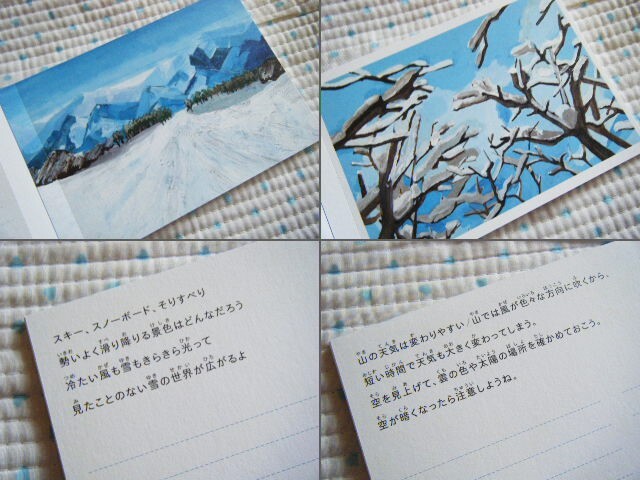 スキー、スノーボード、そりすべり
勢いよく滑り降りる景色はどんなだろう
冷たい風も雪もきらきら光って
見たことのない雪の世界が広がるよ
山の天気は変わりやすい/山では風が色々な方向に吹くから、
短い時間で天気も大きく変わってしまう。
空を見上げて、雲の色や太陽の場所を確かめておこう。
空が暗くなったら注意しようね。